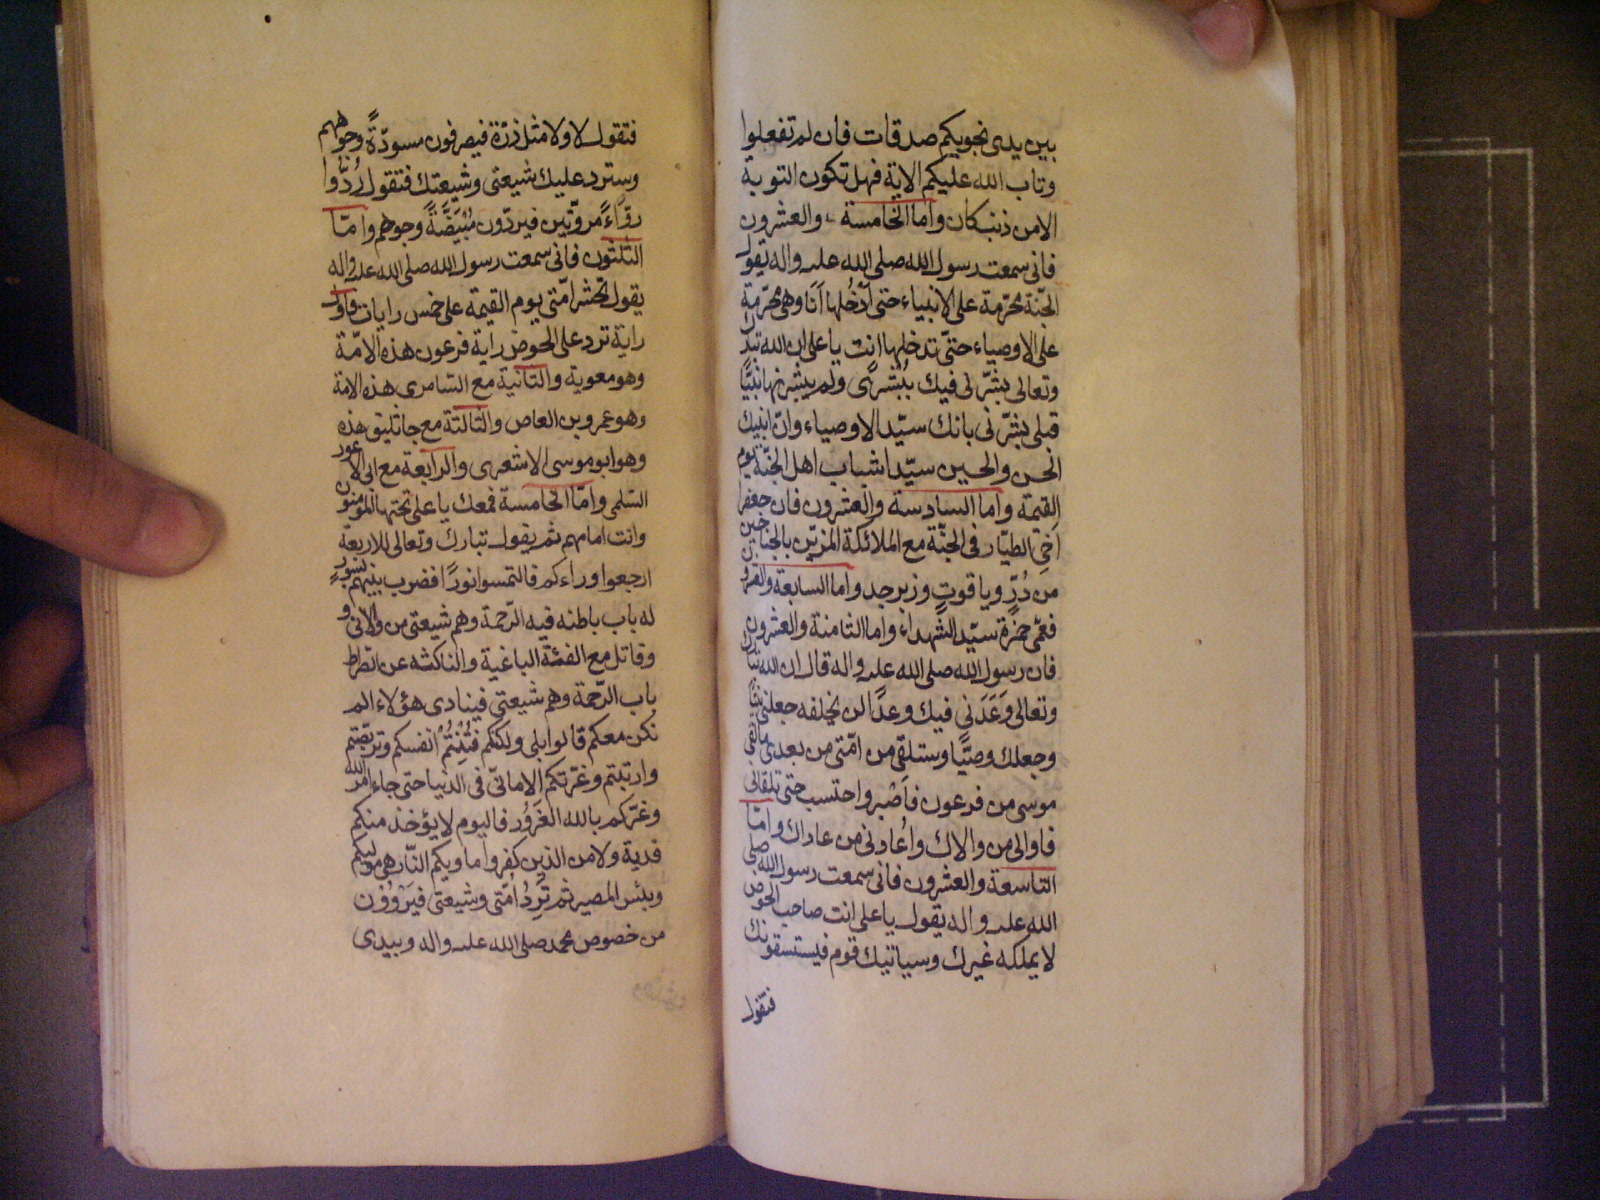 بين يدى نجويكم صدقات فان لم تفعلوا
وتاب الله عليكم الاية فهل تكون التوبة
الا من ذنب كان واما الخامسة والعشرون
فانى سمعت رسول الله صلى الله عليه واله يقول
الجنّة محرّمة على الانبياء حتى اَدْخُلها اَنَا وهى محرّمة
على الاوصياء حتّى تدخلها انت يا على ان الله تبارك
وتعالى بشّرنى فيك بُبُشرًى ولم يبشر بها نبيًّا
قبلى بشّرنى بانك سيّد الاوصياء وانّ ابنيك
الحسن والحسين سيّدا شباب اهل الجنّة يوم
القيمة واما السادسة والعشرون فان جعفرا
اَخِى الطيّار فى الجنّة مع الملائكة المزيّن بالجناحين
من دُرّ وياقوت وزبرجد واما السابعة والعشرون
فعمّى حمزة سيّد الشهداء واما الثامنة والعشرون
فان رسول الله صلى الله عليه واله قال ان الله تبارك
وتعالى وَعَدَنِى فيك وعدًا لن يخلفه جعلنى نبيًّا
وجعلك وصيًّا وستلقى من امّتى من بعدى ما لقى
موسى من فرعون فاَصْبر واحتسب حتى تلقانى
فاوالى من والاك واُعادى من عاداك وامّا
التاسعة والعشرون فانى سمعت رسول الله صلى
الله عليه واله يقول يا على انت صاحب الحوض
لا يملكه غيرك وسياتيك قوم فيستسقونك
فتقول
فتقول لا ولا مثل ذرّة فيصرفون مسودّةً وجوههم
وسترد عليك شيعتى وشيعتك فتقول رُدُّوا
روّاءً مروّيين فيردّون مُبْيَضَّةً وجوههم وامّا
الثلثون فانى سمعت رسول الله صلى الله عليه واله
يقول تحشر امّتى يوم القيمة على خمس رايات فاول
راية ترد على الحوض راية فرعون هذه الامّة
وهو معوية والثانية مع السّامرى هذه الامة
وهو عمرو بن العاص والثالثة مع جاثليق هذه
وهو ابو موسى الاشعرى والرابعة مع ابى الاعور
السّلمى وامّا الخامسة فمعك يا على تحتها المؤمنون
وانت امامهم ثم يقول تبارك وتعالى للاربعة
ارجعوا وراءكم فالتمسوا نورًا فضرب بينهم بسورٍ
له باب باطنه فيه الرّحمة وهم شيعتى من والانى و
وقاتل مع الفئة الباغية والناكثه عن الصراط
باب الرّحمة وهم شيعتى فينادى هؤلاء الم
نكن معكم قالوا بلى ولكنّكم فَتَنْتُمْ انفسكم وتربّصتم
وارتبتم وغرّتكم الامانىّ فى الدنيا حتى جاء امر الله
وغرّكم بالله الغَرُوُر فاليوم لا يؤخذ منكم
فدية ولا من الذين كفروا ماويكم النّار هى موليكم
وبئس المصير ثم تَرِدُ اُمّتى وشيعتى فيَرْوُوْن
من خصوص محمد صلى الله عليه واله وبيدى